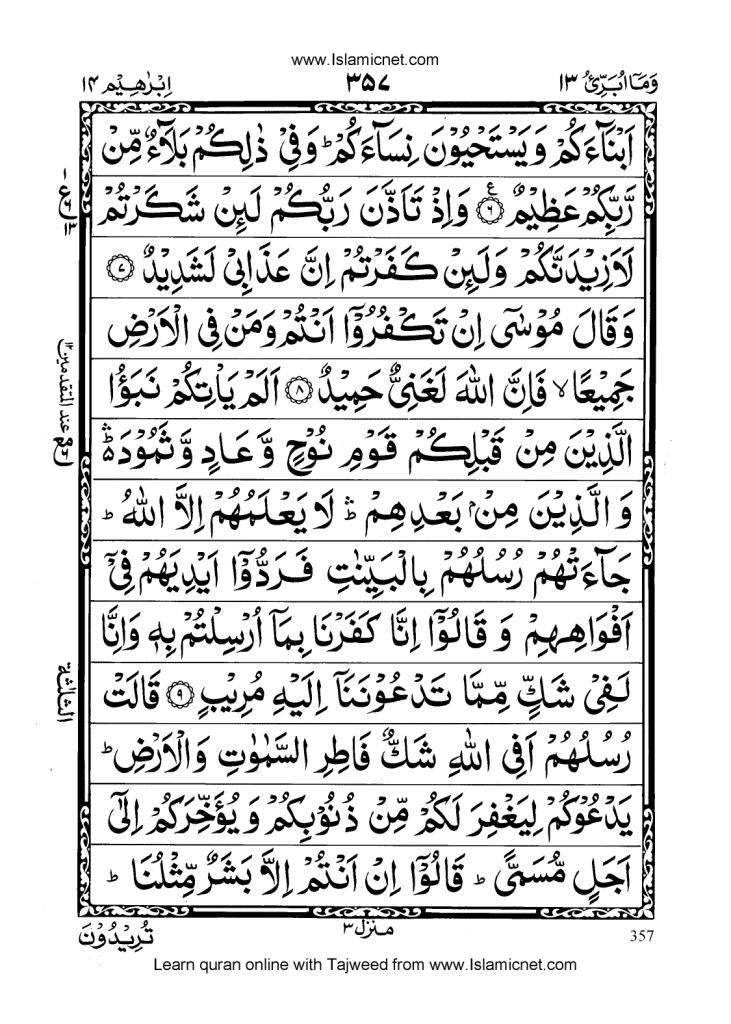 www.Islamicnet.com
وَمَآ اُبَرِّئُ ١٣
٣٥٧
اِبْرٰهِيْم ١٤
اَبْنَآءَكُمْ وَ يَسْتَحْيُوْنَ نِسَآءَكُمْ ؕ وَفِيْ ذٰلِكُمْ بَلَآءٌ مِّنْ
رَّبِّكُمْ عَظِيْمٌ ۝٦ ع وَاِذْ تَاَذَّنَ رَبُّكُمْ لَئِنْ شَكَرْتُمْ
لَاَزِيْدَنَّكُمْ وَلَئِنْ كَفَرْتُمْ اِنَّ عَذَابِيْ لَشَدِيْدٌ ۝٧
وَقَالَ مُوْسٰٓى اِنْ تَكْفُرُوْٓا اَنْتُمْ وَمَنْ فِي الْاَرْضِ
جَمِيْعًا ۙ فَاِنَّ اللّٰهَ لَغَنِيٌّ حَمِيْدٌ ۝٨ اَلَمْ يَاْتِكُمْ نَبَؤُا
الَّذِيْنَ مِنْ قَبْلِكُمْ قَوْمِ نُوْحٍ وَّعَادٍ وَّثَمُوْدَ ۛؕ
وَالَّذِيْنَ مِنْۢ بَعْدِهِمْ ۛؕ لَا يَعْلَمُهُمْ اِلَّا اللّٰهُ ؕ
جَآءَتْهُمْ رُسُلُهُمْ بِالْبَيِّنٰتِ فَرَدُّوْٓا اَيْدِيَهُمْ فِيْٓ
اَفْوَاهِهِمْ وَ قَالُوْٓا اِنَّا كَفَرْنَا بِمَآ اُرْسِلْتُمْ بِهٖ وَاِنَّا
لَفِيْ شَكٍّ مِّمَّا تَدْعُوْنَنَآ اِلَيْهِ مُرِيْبٍ ۝٩ قَالَتْ
رُسُلُهُمْ اَفِي اللّٰهِ شَكٌّ فَاطِرِ السَّمٰوٰتِ وَالْاَرْضِ ؕ
يَدْعُوْكُمْ لِيَغْفِرَ لَكُمْ مِّنْ ذُنُوْبِكُمْ وَ يُؤَخِّرَكُمْ اِلٰٓى
اَجَلٍ مُّسَمًّى ؕ قَالُوْٓا اِنْ اَنْتُمْ اِلَّا بَشَرٌ مِّثْلُنَا ؕ
ع ١٣
عند المتقدمين ١٢
الثلثة
357
منزل ٣
تُرِيْدُوْنَ
Learn quran online with Tajweed from www.Islamicnet.com